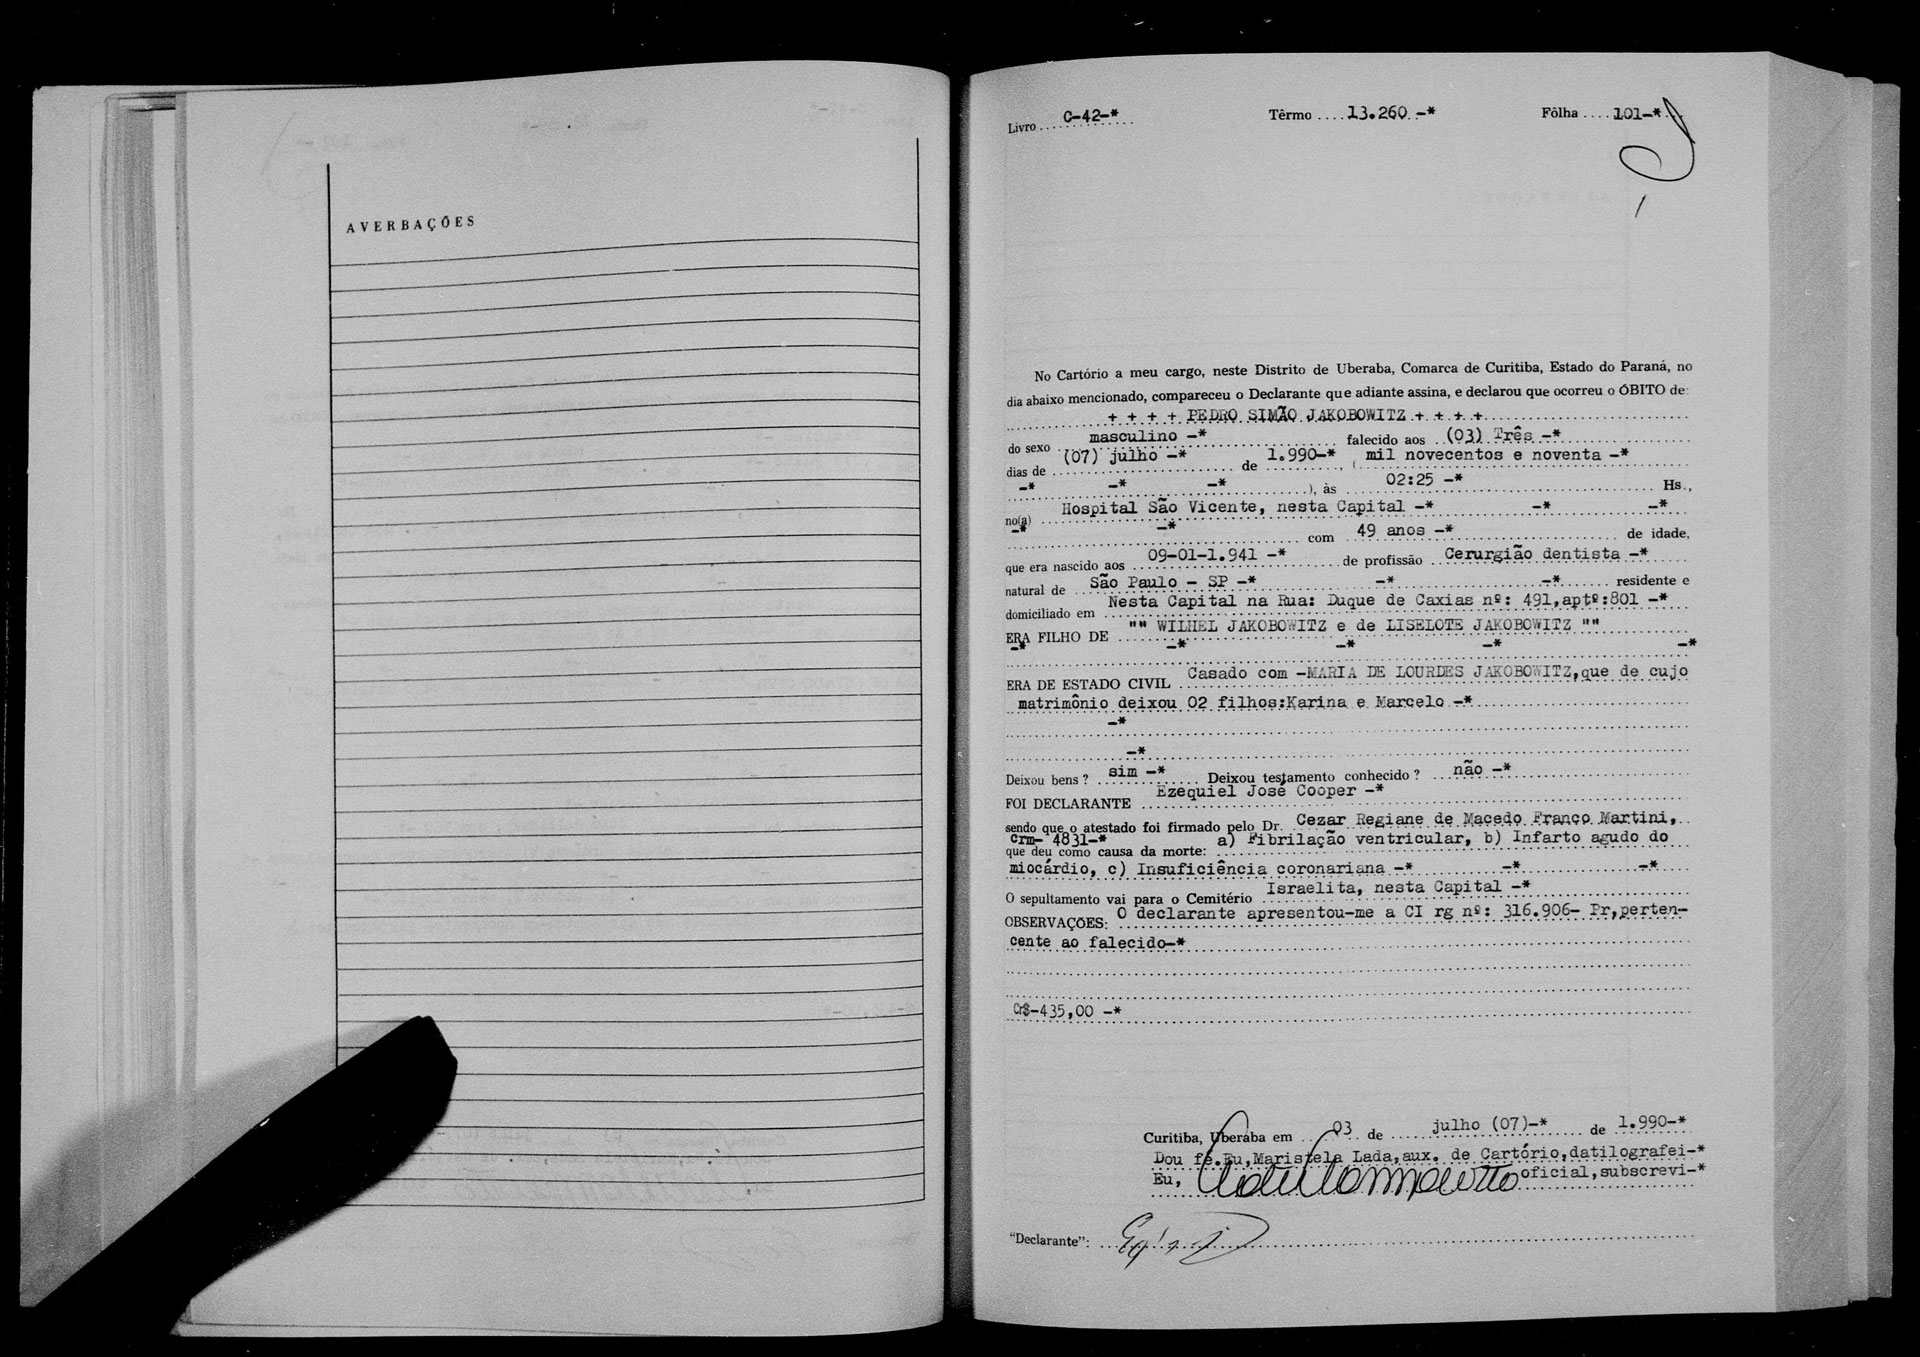 AVERBAÇÕES
Livro .... C-42-* Têrmo .... 13.260 -* Fôlha .... 101-*
No Cartório a meu cargo, neste Distrito de Uberaba, Comarca de Curitiba, Estado do Paraná, no
dia abaixo mencionado, compareceu o Declarante que adiante assina, e declarou que ocorreu o ÓBITO de:
+ + + + PEDRO SIMÃO JAKOBOWITZ + + + +
do sexo masculino -* falecido aos (03) Três -*
dias de (07) julho -* de 1.990-* ( mil novecentos e noventa -*
-* -* -* ), às 02:25 -* Hs.,
no(a) Hospital São Vicente, nesta Capital -* -* -*
-* -* com 49 anos -* de idade,
que era nascido aos 09-01-1.941 -* de profissão Cerurgião dentista -*
natural de São Paulo - SP -* -* -* residente e
domiciliado em Nesta Capital na Rua: Duque de Caxias nº: 491,aptº:801 -*
ERA FILHO DE "" WILHEL JAKOBOWITZ e de LISELOTE JAKOBOWITZ ""
-* -* -* -* -*
ERA DE ESTADO CIVIL Casado com -MARIA DE LOURDES JAKOBOWITZ,que de cujo
matrimônio deixou 02 filhos:Karina e Marcelo -*
-*
-*
Deixou bens ? sim -* Deixou testamento conhecido ? não -*
FOI DECLARANTE Ezequiel José Cooper -*
sendo que o atestado foi firmado pelo Dr. Cezar Regiane de Macedo Franco Martini,
crm- 4831-*
que deu como causa da morte: a) Fibrilação ventricular, b) Infarto agudo do
miocárdio, c) Insuficiência coronariana -* -* -*
O sepultamento vai para o Cemitério Israelita, nesta Capital -*
OBSERVAÇÕES: O declarante apresentou-me a CI rg nº: 316.906- Pr,perten-
cente ao falecido-*
Cr$-435,00 -*
Curitiba, Uberaba em 03 de julho (07)-* de 1.990-*
Dou fé.Eu,Maristela Lada,aux. de Cartório,datilografei-*
Eu, oficial,subscrevi-*
"Declarante":